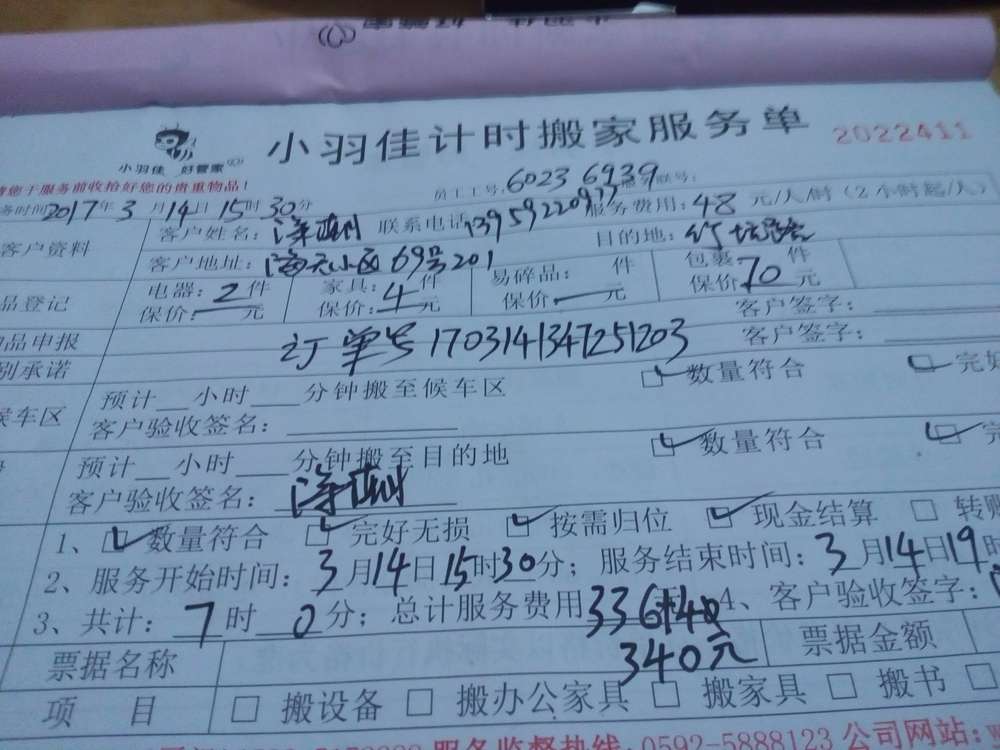 小羽佳计时搬家服务单 2022411
小羽佳 好管家
您于服务前收拾好您的贵重物品！
员工工号：6023 6939
务时间2017年3月14日15时30分
客户资料
客户姓名： 联系电话 服务费用：48元/人/时（2小时起/人）
客户地址：海天小区69号201 目的地：
品登记
电器：2件 家具：4件 易碎品： 件 包裹： 件
保价：一元 保价：一元 保价一元 保价70元
品申报 客户签字：
别承诺 订单号1703141347251203 客户签字：
候车区
预计 小时 分钟搬至候车区 数量符合 完好
客户验收签名：
预计 小时 分钟搬至目的地 数量符合 完
客户验收签名：
1、数量符合 完好无损 按需归位 现金结算 转账
2、服务开始时间：3月14日15时30分；服务结束时间：3月14日19时
3、共计：7时0分；总计服务费用336 4、客户验收签字：
340元
票据名称 票据金额
项 目 搬设备 搬办公家具 搬家具 搬书
服务监督热线：0592-5888123 公司网站：